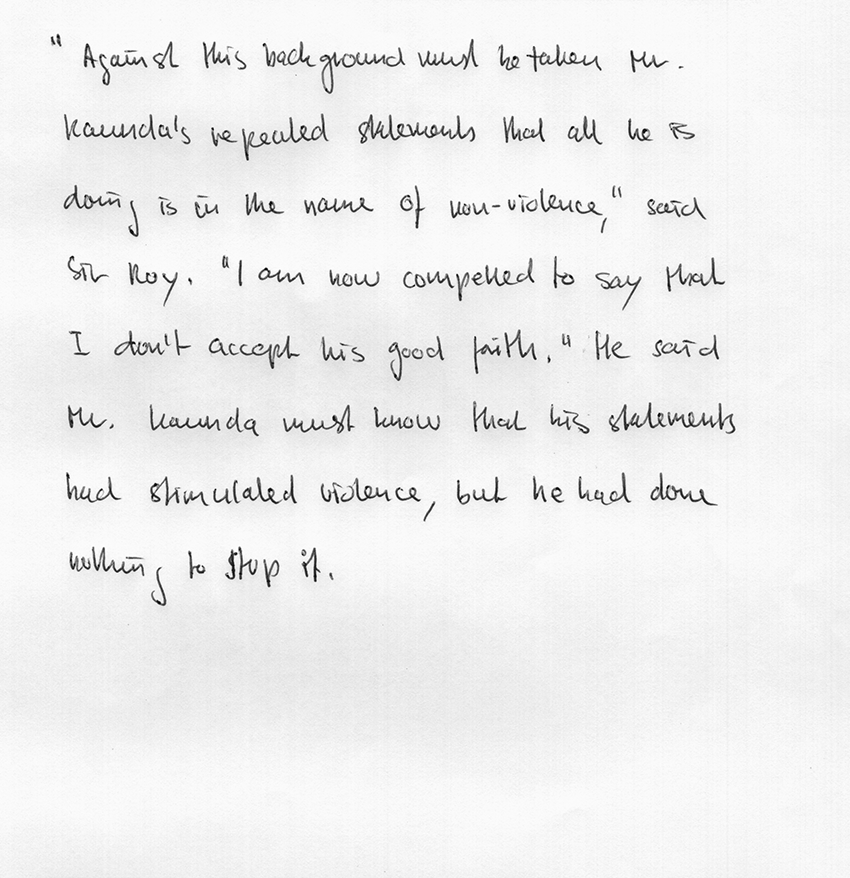 "Against this background must be taken Mr.
Kaunda's repeated statements that all he is
doing is in the name of non-violence," said
Sir Roy. "I am now compelled to say that
I don't accept his good faith." He said
Mr. Kaunda must know that his statements
had stimulated violence, but he had done
nothing to stop it.